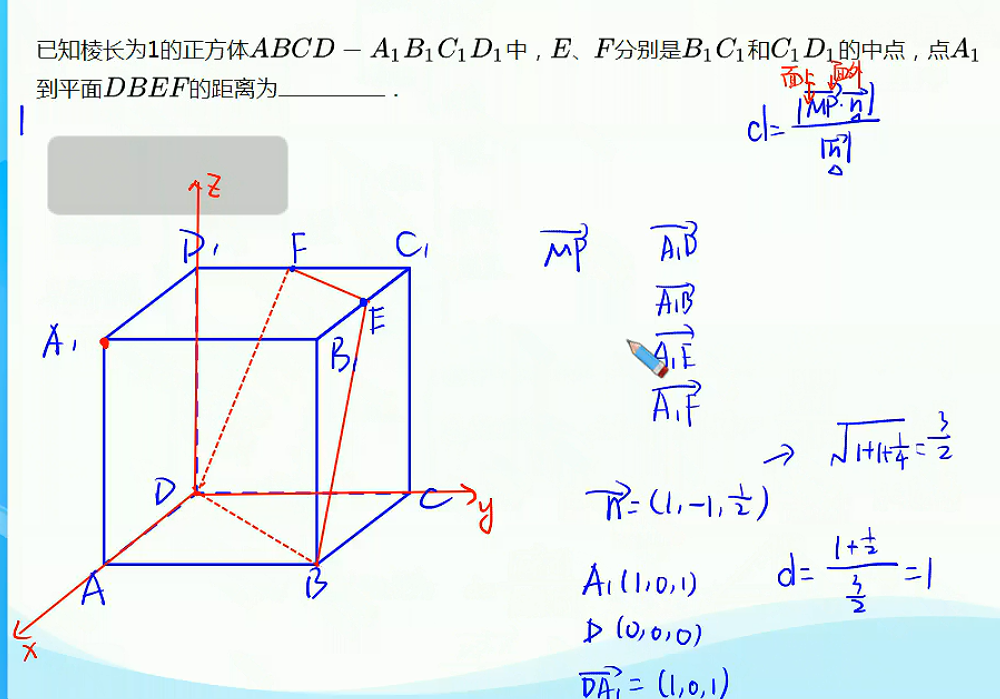 已知棱长为1的正方体ABCD − A₁B₁C₁D₁中，E、F分别是B₁C₁和C₁D₁的中点，点A₁
到平面DBEF的距离为________．
面上 面外
d = |MP→·n→| / |n→|
1
z
D₁ F C₁
A₁ B₁ E
D C y
A B
x
MP→ A₁D→
A₁B→
A₁E→
A₁F→
→ √(1+1+1/4) = 3/2
n→ = (1, -1, 1/2)
d = (1+1/2) / (3/2) = 1
A₁(1,0,1)
D (0,0,0)
DA₁→ = (1,0,1)